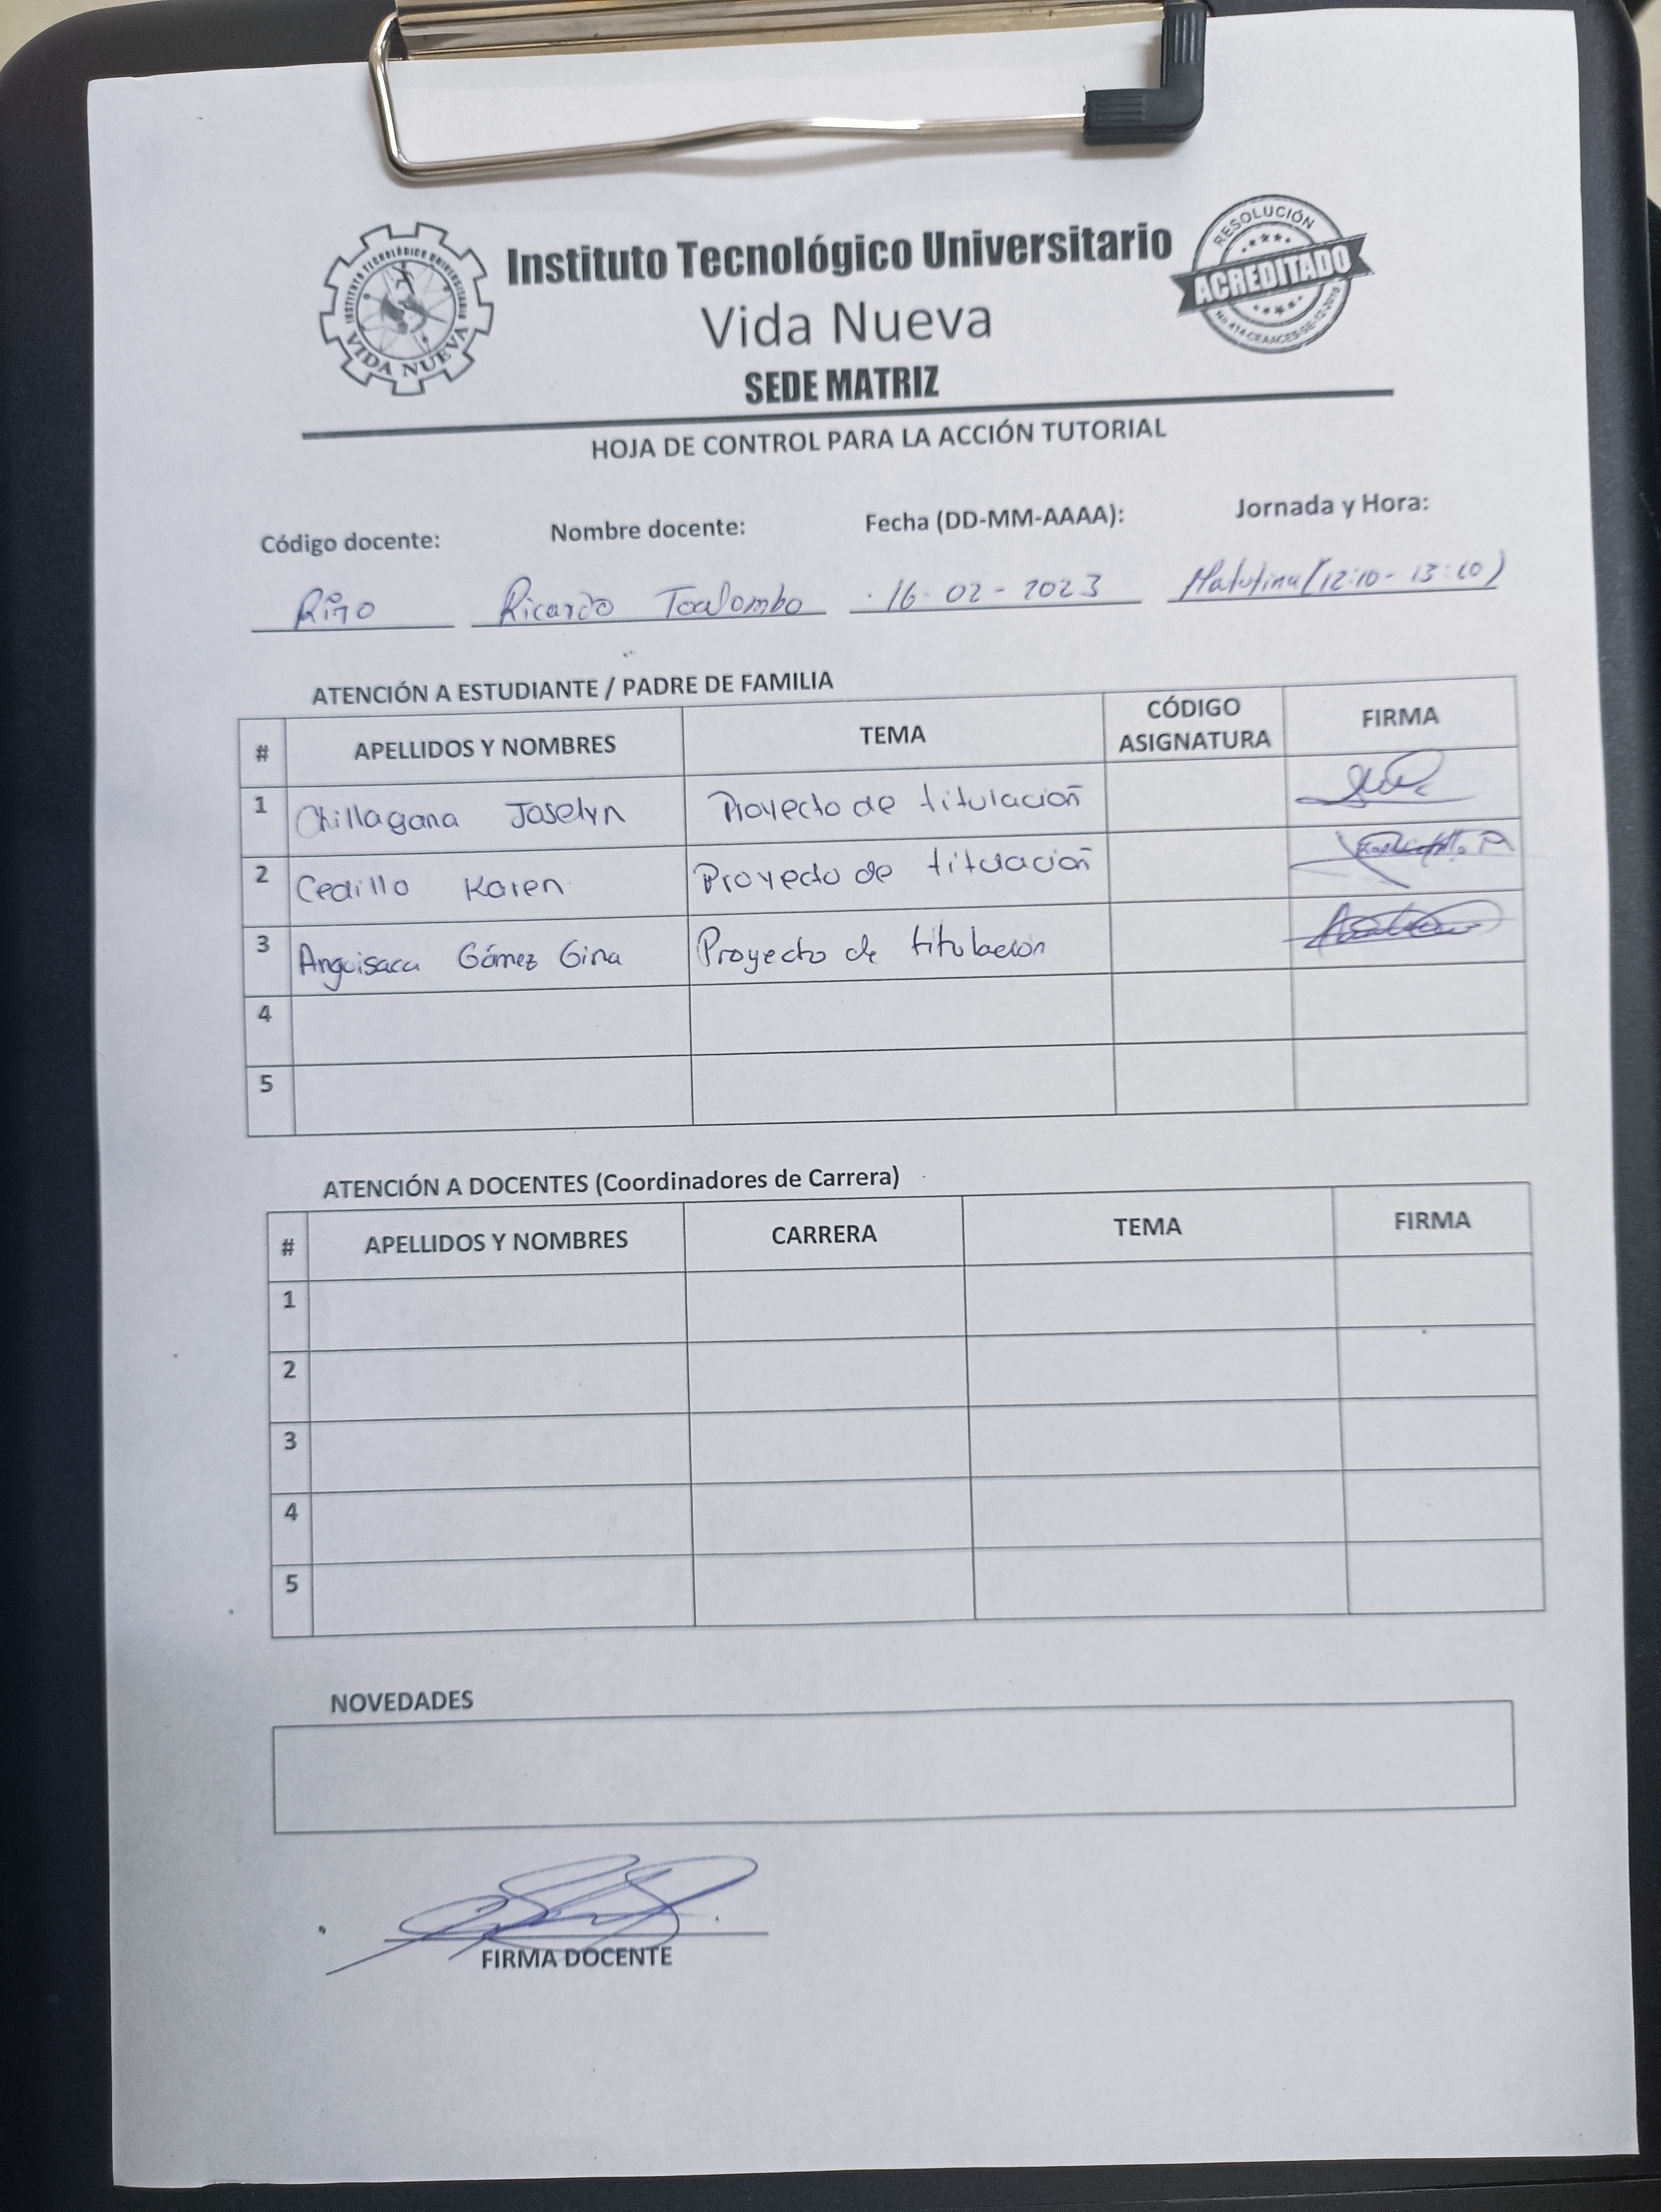 INSTITUTO TECNOLÓGICO UNIVERSITARIO
VIDA NUEVA
Instituto Tecnológico Universitario
Vida Nueva
SEDE MATRIZ
RESOLUCIÓN
ACREDITADO
HOJA DE CONTROL PARA LA ACCIÓN TUTORIAL
Código docente: Nombre docente: Fecha (DD-MM-AAAA): Jornada y Hora:
Ricardo Toalombo 16-02-2023 Matutina (12:10- 13:10)
ATENCIÓN A ESTUDIANTE / PADRE DE FAMILIA
# APELLIDOS Y NOMBRES TEMA CÓDIGO ASIGNATURA FIRMA
1 Chillagana Joselyn Proyecto de titulación
2 Cedillo Karen Proyecto de titulación
3 Anguisaca Gómez Gina Proyecto de titulación
4
5
ATENCIÓN A DOCENTES (Coordinadores de Carrera)
# APELLIDOS Y NOMBRES CARRERA TEMA FIRMA
1
2
3
4
5
NOVEDADES
FIRMA DOCENTE